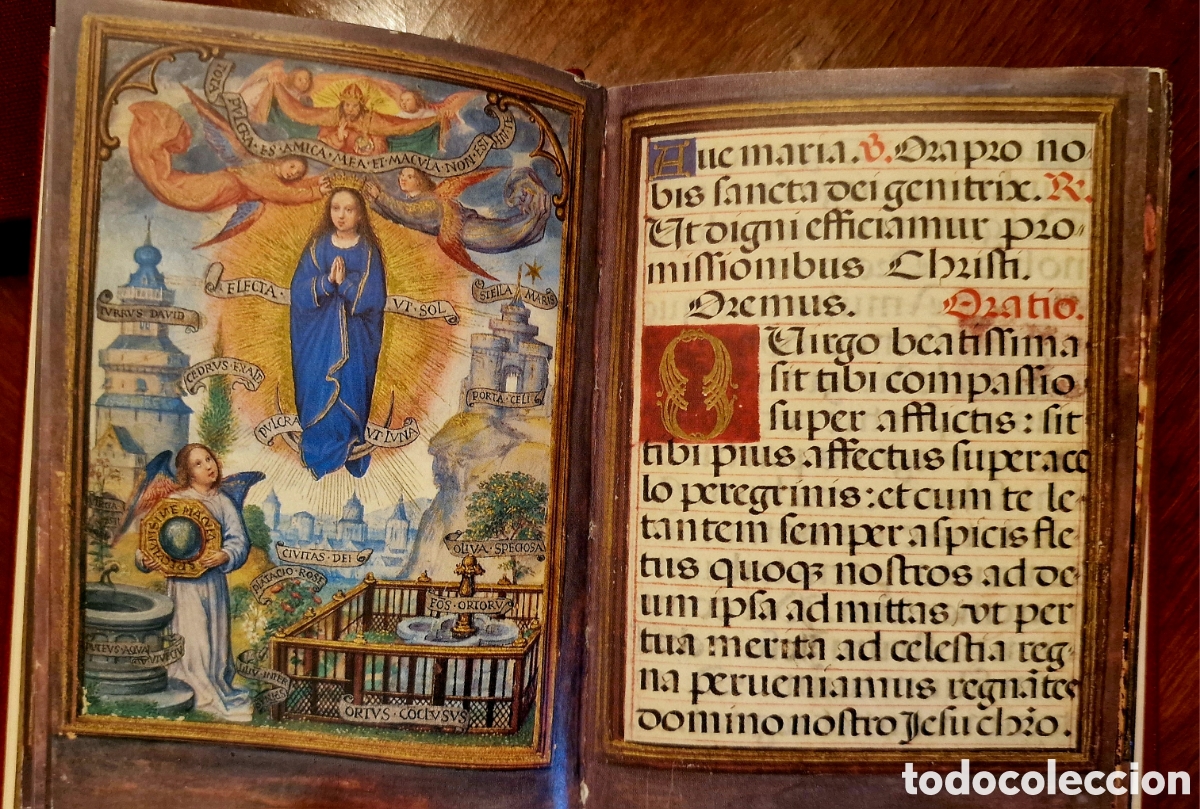 TOTA PVLCRA·ES·AMICA·MEA·ET·MACVLA·NON·EST·IN·TE
ELECTA· VT·SOL
STELLA MARIS
TVRRVS DAVID
CEDRVS EXALT
PORTA CELI
PVLCRA VT LVNA
SPECVLVM SINE MACVLA
CIVITAS DEI
OLIVA·SPECIOSA
PLATACIO ROSE
FOS·ORTORV
PVTEVS AQVA
ORTVS COCLVSVS
Aue maria. V. Ora pro no-
bis sancta dei genitrix. R.
Vt digni efficiamur pro-
missionibus Christi.
Oremus. Oratio.
O Virgo beatissima
sit tibi compassio
super afflictis: sit
tibi pius affectus super acce
lo peregrinis: et cum te le-
tantem semper aspicis fle
tus quoqz nostros ad de
um ipsa admittas, vt per
tua merita ad celestia reg-
na perueniamus regnātes
domino nostro Jesu chr̄o.
todocoleccion